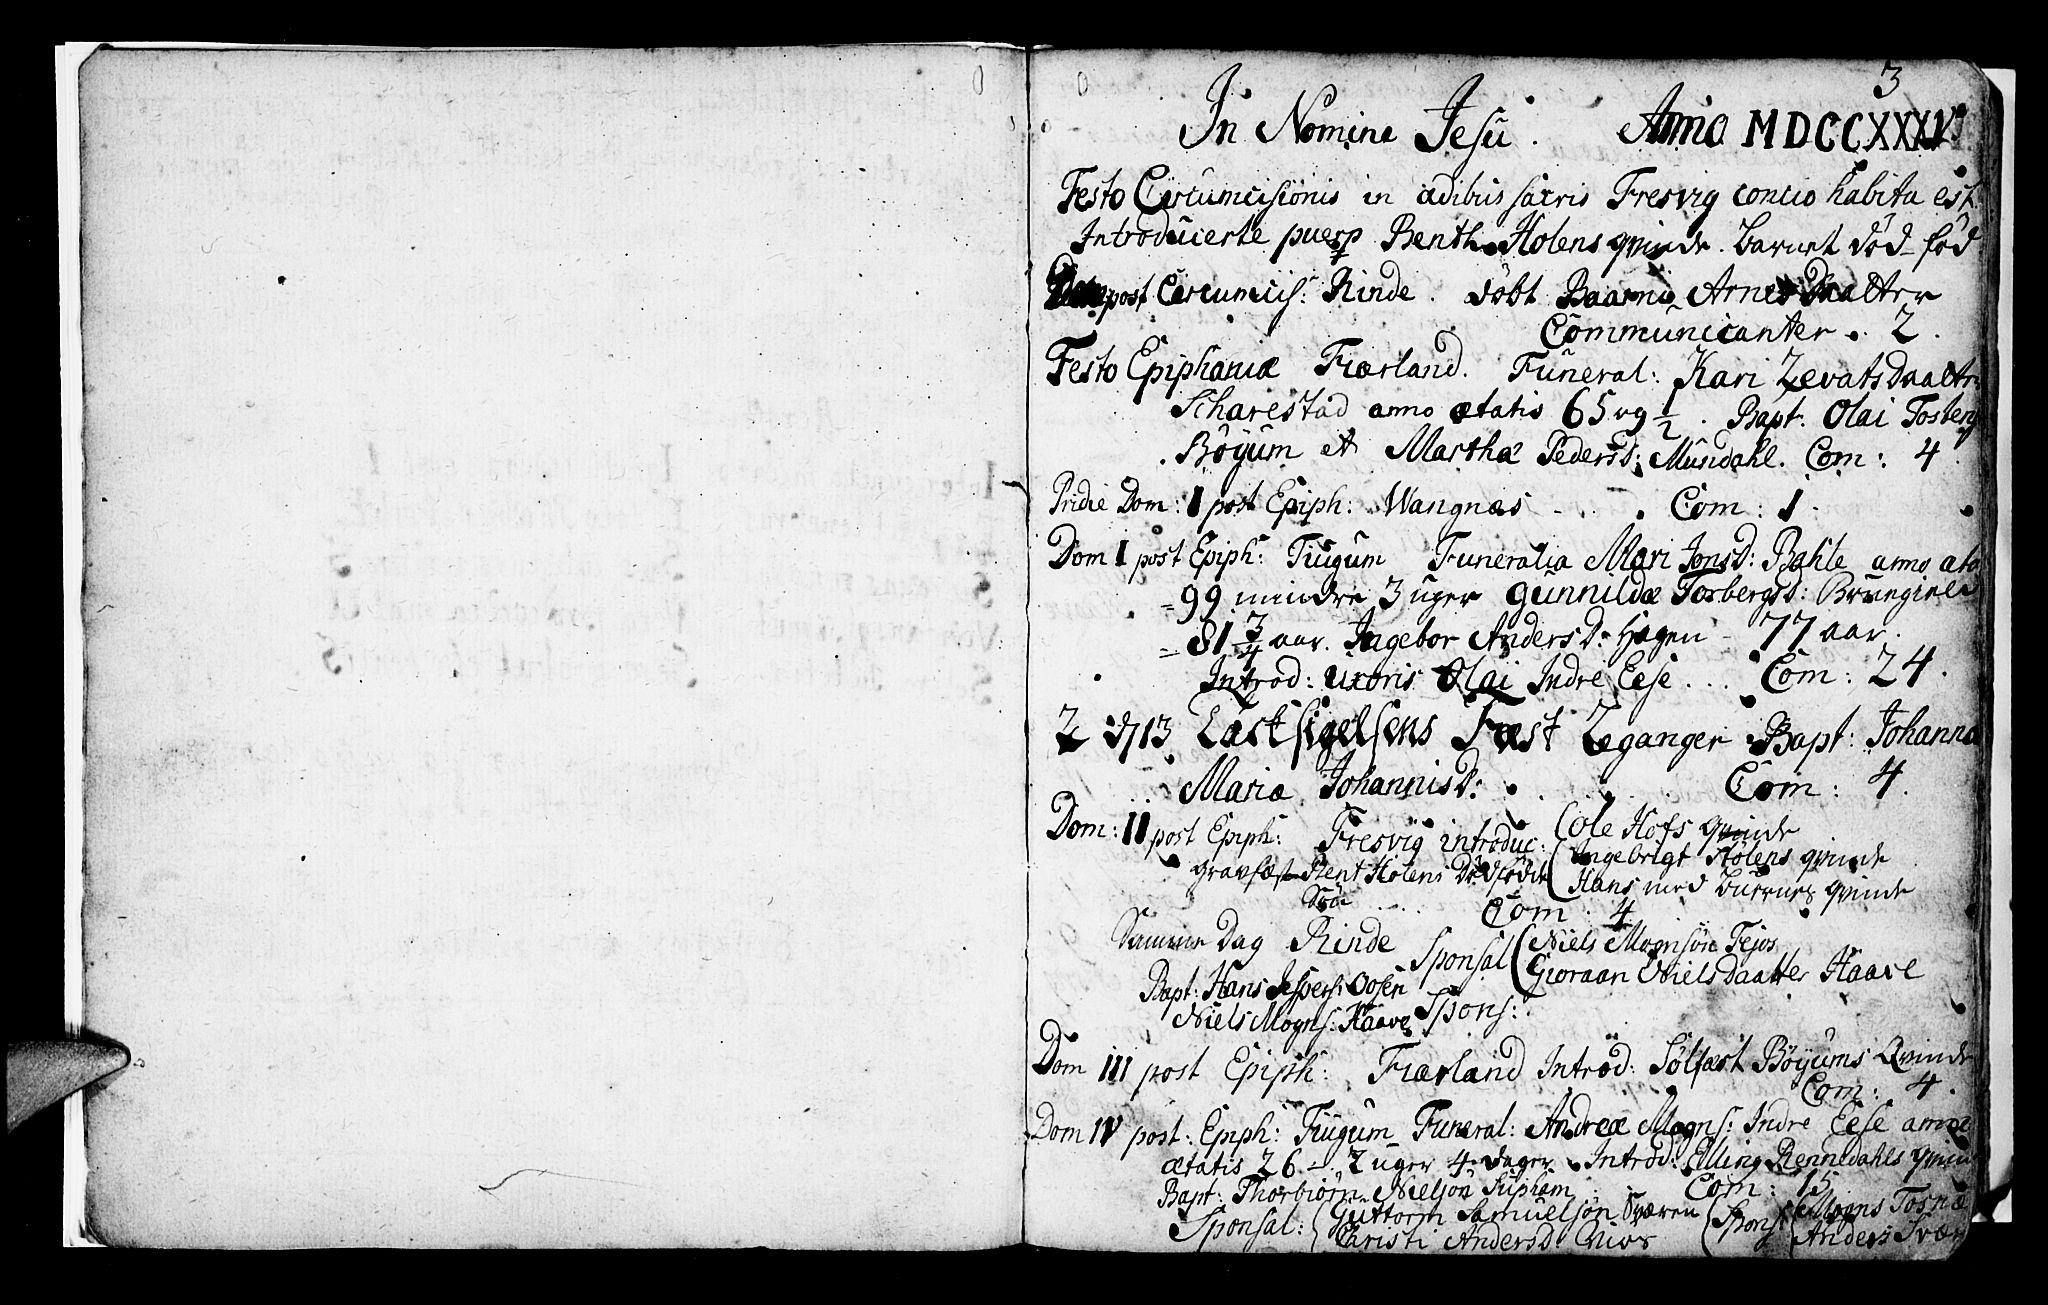 3
In Nomine Jesu. Anno MDCCXXXV
Festo Circumcisionis in ædibus sacris Fresvig concio habita est.
Introducerte puerp Benth Holens qvinde. barnet död-föd
Dom post Circumcis: Rinde. döbt Arne
Communicanter . . 2.
Festo Epiphaniæ Fiærland. Funeral: Kari
Scharestad anno ætatis 65 og 1/2. Bapt: Olai Tosten
Böyum et Martha Pedersd: Mundahl. Com: 4
Pridie Dom: I post Epiph: Wangnæs - . . . Com: 1.
Dom I post Epiph: Tiugum Funeralia Mari Jonsd: Bahle anno æta
= 99 mindre 3 uger Gunnildæ Torbergsd:
= 81 3/4 aar. Ingebor Andersd: Hagen - 77 aar.
Introd: uxoris Olai Indre Eese . . . Com: 24.
2 d/13 Tacksigelsens Fæst Leganger Bapt: Johanna
Maria Johannisd: . . . . Com: 4.
Dom: II post Epiph: Fresvig introduc: Ole Hofs qvinde
Ingebrigt Holens qvinde
gravfæst Bent Holens Dödfödde Hans med qvinde
Sön . . . . Com: 4
Samme Dag Rinde Sponsal Niels Mognsön Fejos
Gioraan Nielsdaatter Haave
Bapt: Hans Jespers: Oosen
Niels Mogns: Haave Spons:
Dom III post Epiph: Fiærland Introd: Sölfæst Böyums Qvinde
Com: 4.
Dom IV post: Epiph: Tiugum Funeral: Andreæ Mogns: Indre Eese anno
ætatis 26 - 2 uger 4 dager. Introd: Elling Rennedahls qvind
Bapt: Thorbiörn Nielsön Com: 15
Sponsal: Guttorm Samuelsön Sværen Spons: Mogns
Christi Andersd: Anders Svær